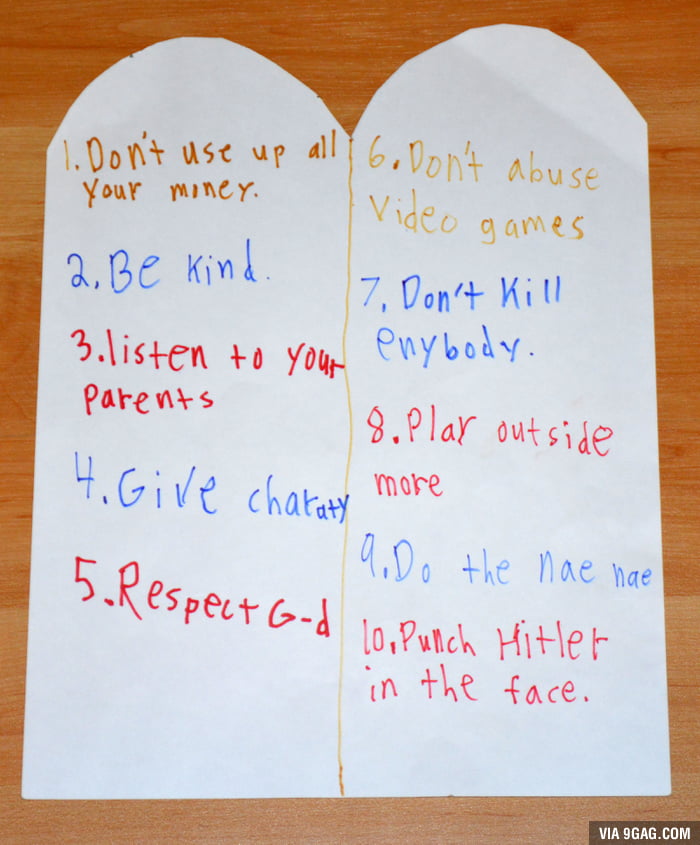 1. Don't use up all
your miney.
2. Be kind.
3. listen to your
parents
4. Give charaty
5. Respect G-d
6. Don't abuse
Video games
7. Don't kill
enybody.
8. Play outside
more
9. Do the nae nae
10. Punch Hitler
in the face.
VIA 9GAG.COM